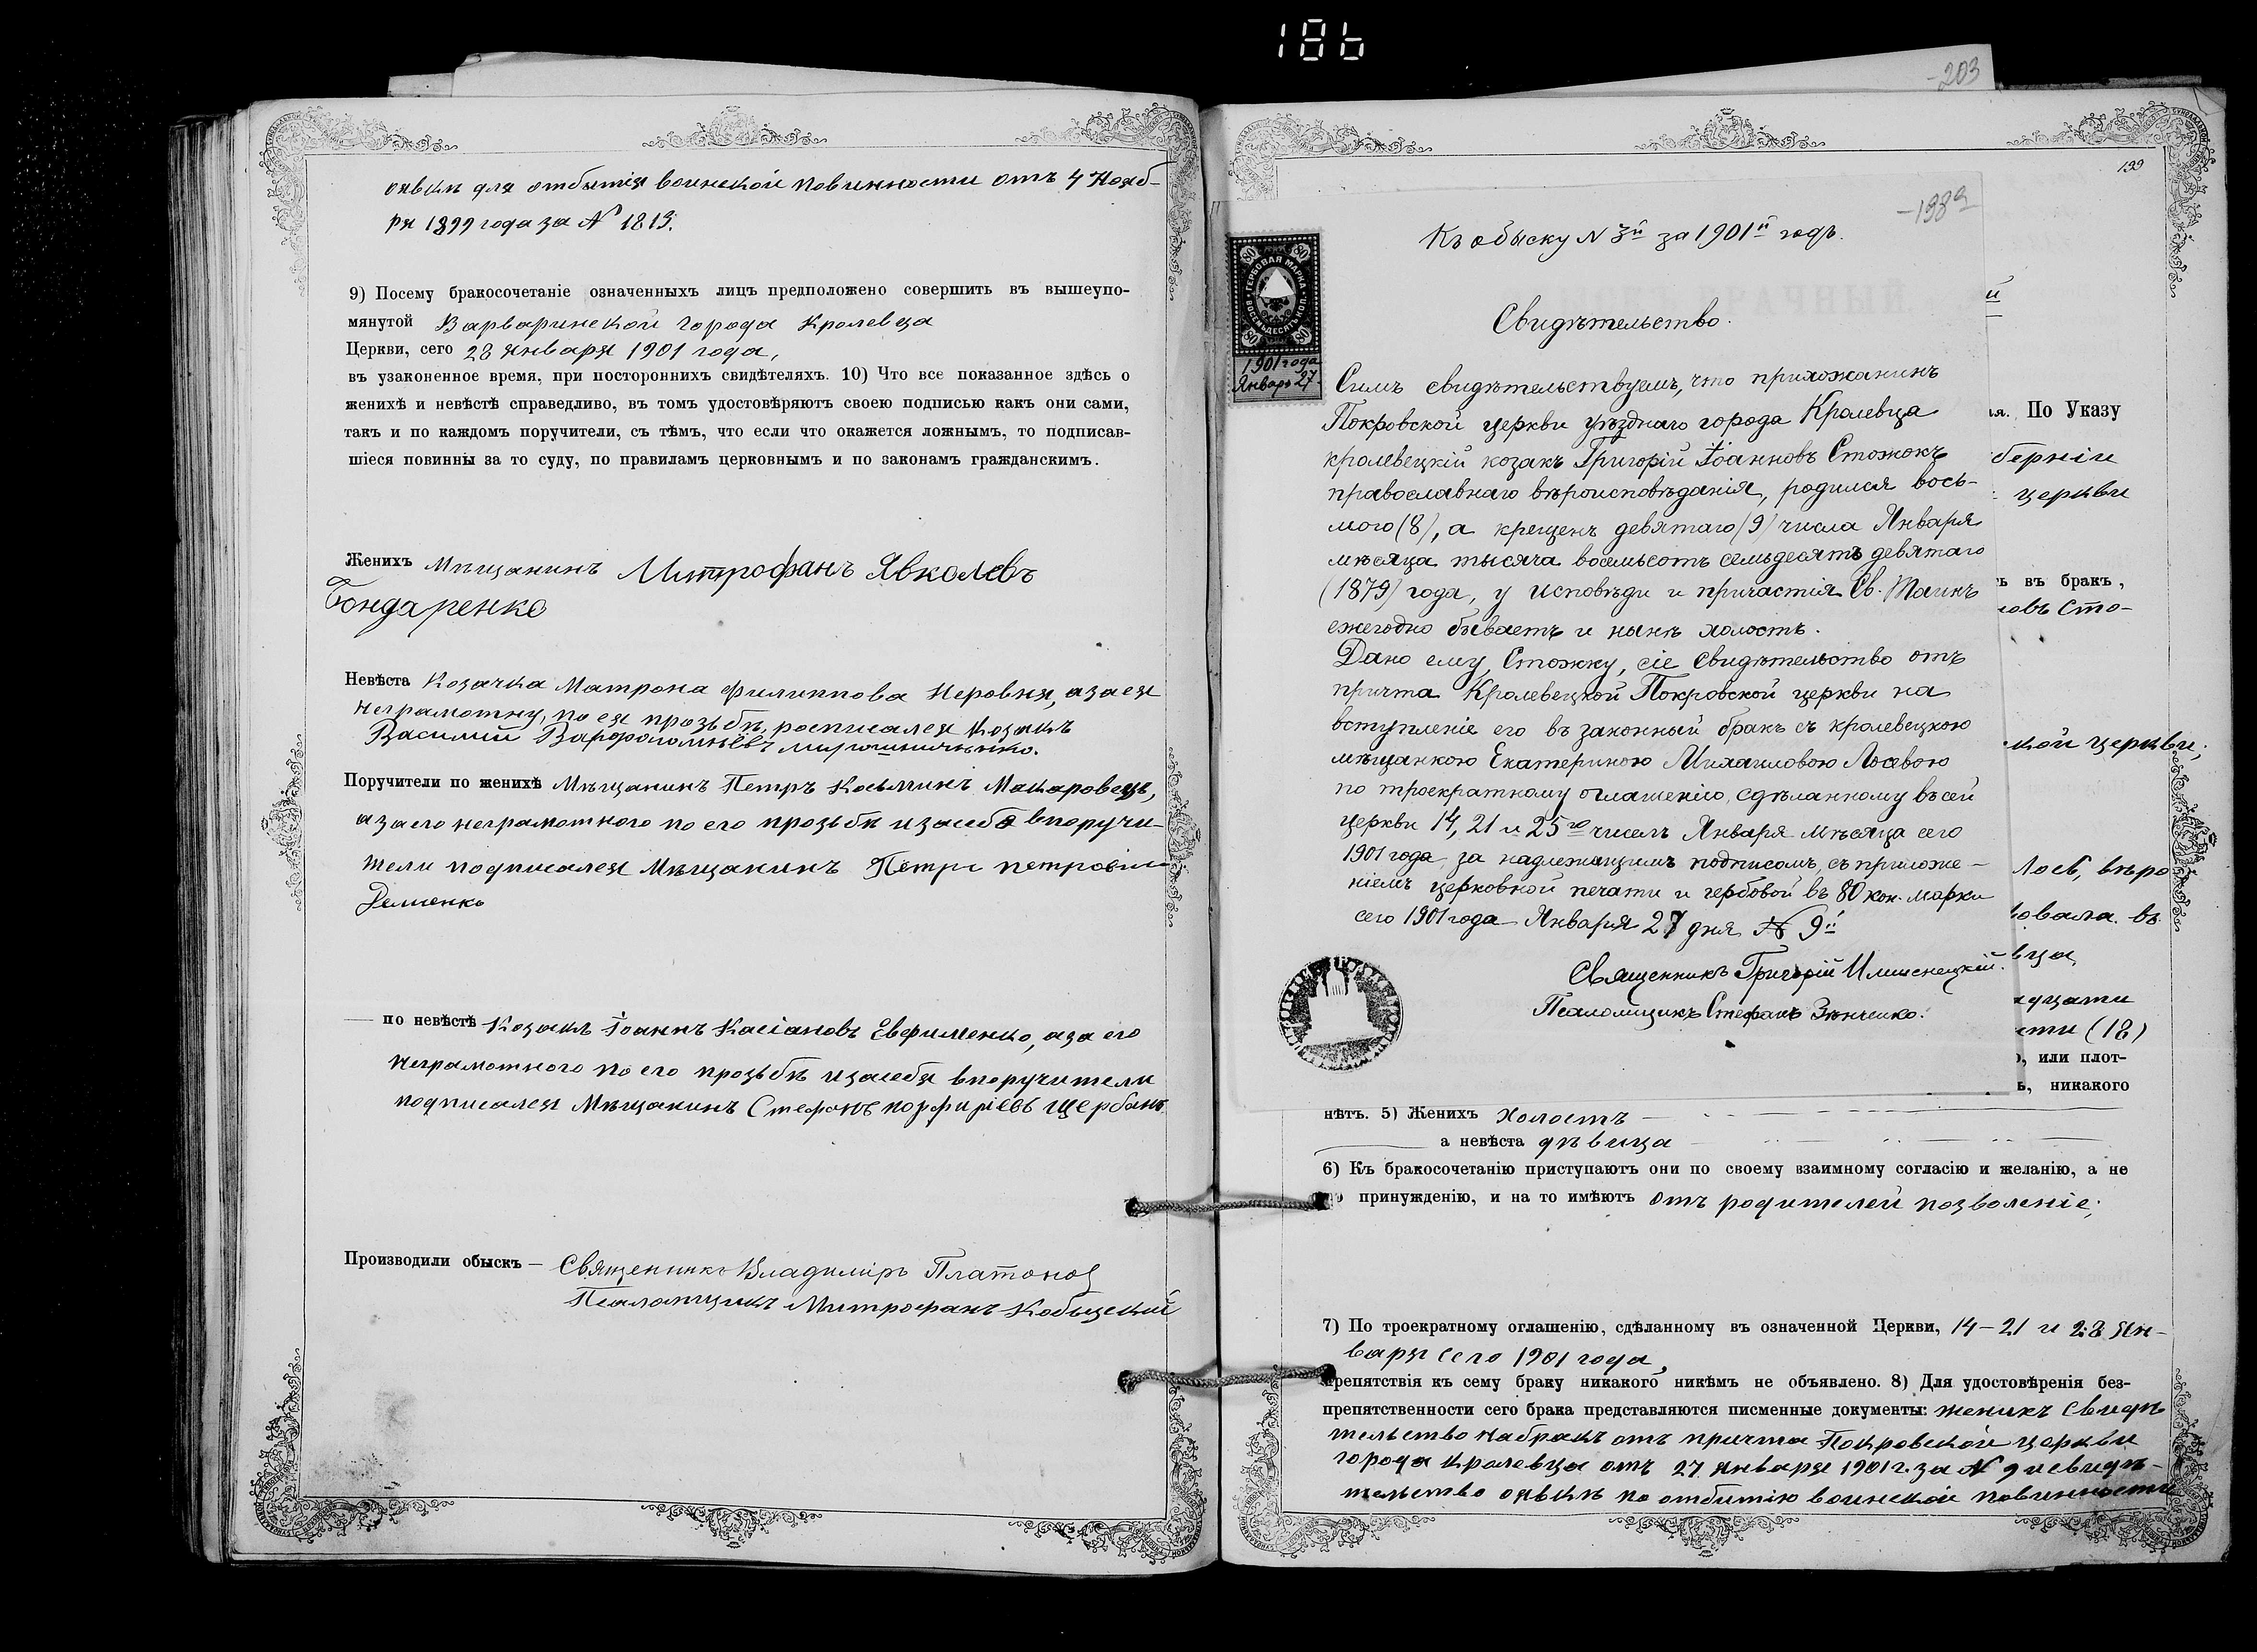 186
оявкѣ для отбытія воинской повинности отъ 4 Нояб-
ря 1899 года за № 1813.
9) Посему бракосочетаніе означенныхъ лицъ предположено совершить въ вышеупо-
мянутой Варваринской города Кролевца
Церкви, сего 28 января 1901 года,
въ узаконенное время, при постороннихъ свидѣтеляхъ. 10) Что все показанное здѣсь о
женихѣ и невѣстѣ справедливо, въ томъ удостовѣряютъ своею подписью какъ они сами,
такъ и по каждомъ поручители, съ тѣмъ, что если что окажется ложнымъ, то подписав-
шіеся повинны за то суду, по правиламъ церковнымъ и по законамъ гражданскимъ.
Женихъ Мѣщанинъ Митрофанъ Явколевъ
Бондаренко
Невѣста Козачка Матрона Филиппова Неровня, а за ея
неграмотну, по ея прозьбѣ, росписался Козакъ
Василий Варфоломѣевъ мирошниченко.
Поручители по женихѣ Мѣщанинъ Петръ Косьминъ Макаровецъ,
а за его неграмотного по его прозьбѣ и за себя в поручи-
тели подписался Мѣщанинъ Петръ петровъ
— по невѣстѣ Козакъ Іоаннъ Касіановъ Евфименко, а за его
неграмотного по его прозьбѣ и за себя в поручители
подписался Мѣщанинъ Стефанъ порфиріевъ Щербакъ
Производили обыскъ — Священникъ Владиміръ Платонов
Псаломщикъ Митрофанъ Кобыщский
-203
199
-198а
Къ обыску N 3й за 1901й годъ.
80 80
ГЕРБОВАЯ МАРКА
ВОСЕМЬДЕСЯТЪ КОП.
80 80
1901 года
Январь 27.
Свидѣтельство.
Симъ свидѣтельствуемъ, что прихожанинъ
Покровской церкви уѣзднаго города Кролевца
кролевецкій козакъ Григорій Іоанновъ Стожокъ
православнаго вѣроисповѣданія, родился вось-
мого (8), а крещенъ девятаго (9) числа Января
мѣсяца тысяча восемьсотъ семьдесятъ девятаго
(1879) года, у исповѣди и причастія Св. Таинъ
ежегодно бываетъ и нынѣ холостъ.
Дано ему, Стожку, сіе свидѣтельство отъ
причта Кролевецкой Покровской церкви на
вступленіе его въ законный бракъ съ кролевецкою
мѣщанкою Екатериною Михаиловою Лоевою
по троекратному оглашенію, сдѣланному въ сей
церкви 14, 21 и 25го чиселъ Января мѣсяца сего
1901 года, за надлежащимъ подписомъ, съ приложе-
ніемъ церковной печати и гербовой въ 80 коп. марки
сего 1901 года Января 27 дня № 9й
Священникъ Григорій
Псаломщикъ Стефанъ Зѣнченко.
и
ія. По Указу
берніи
церкви
ь въ бракъ,
новъ Сто-
кой церкви;
Лоев, вѣро
овала въ
вца
адцати
сти (18)
о, или плот-
ь, никакого
нѣтъ. 5) Женихъ холостъ
а невѣста дѣвица
6) Къ бракосочетанію приступаютъ они по своему взаимному согласію и желанію, а не
по принужденію, и на то имѣютъ отъ родителей позволеніе;
7) По троекратному оглашенію, сдѣланному въ означенной Церкви, 14-21 и 28 Ян-
варя сего 1901 года,
препятствія къ сему браку никакого никѣмъ не объявлено. 8) Для удостовѣренія без-
препятственности сего брака представляются писменные документы: женихъ Свидѣ
тельство на бракъ отъ причта Покровской церкви
города Кролевца отъ 27 января 1901 г. за № 9 и свидѣ-
тельство оявкѣ по отбитію воинской повинности